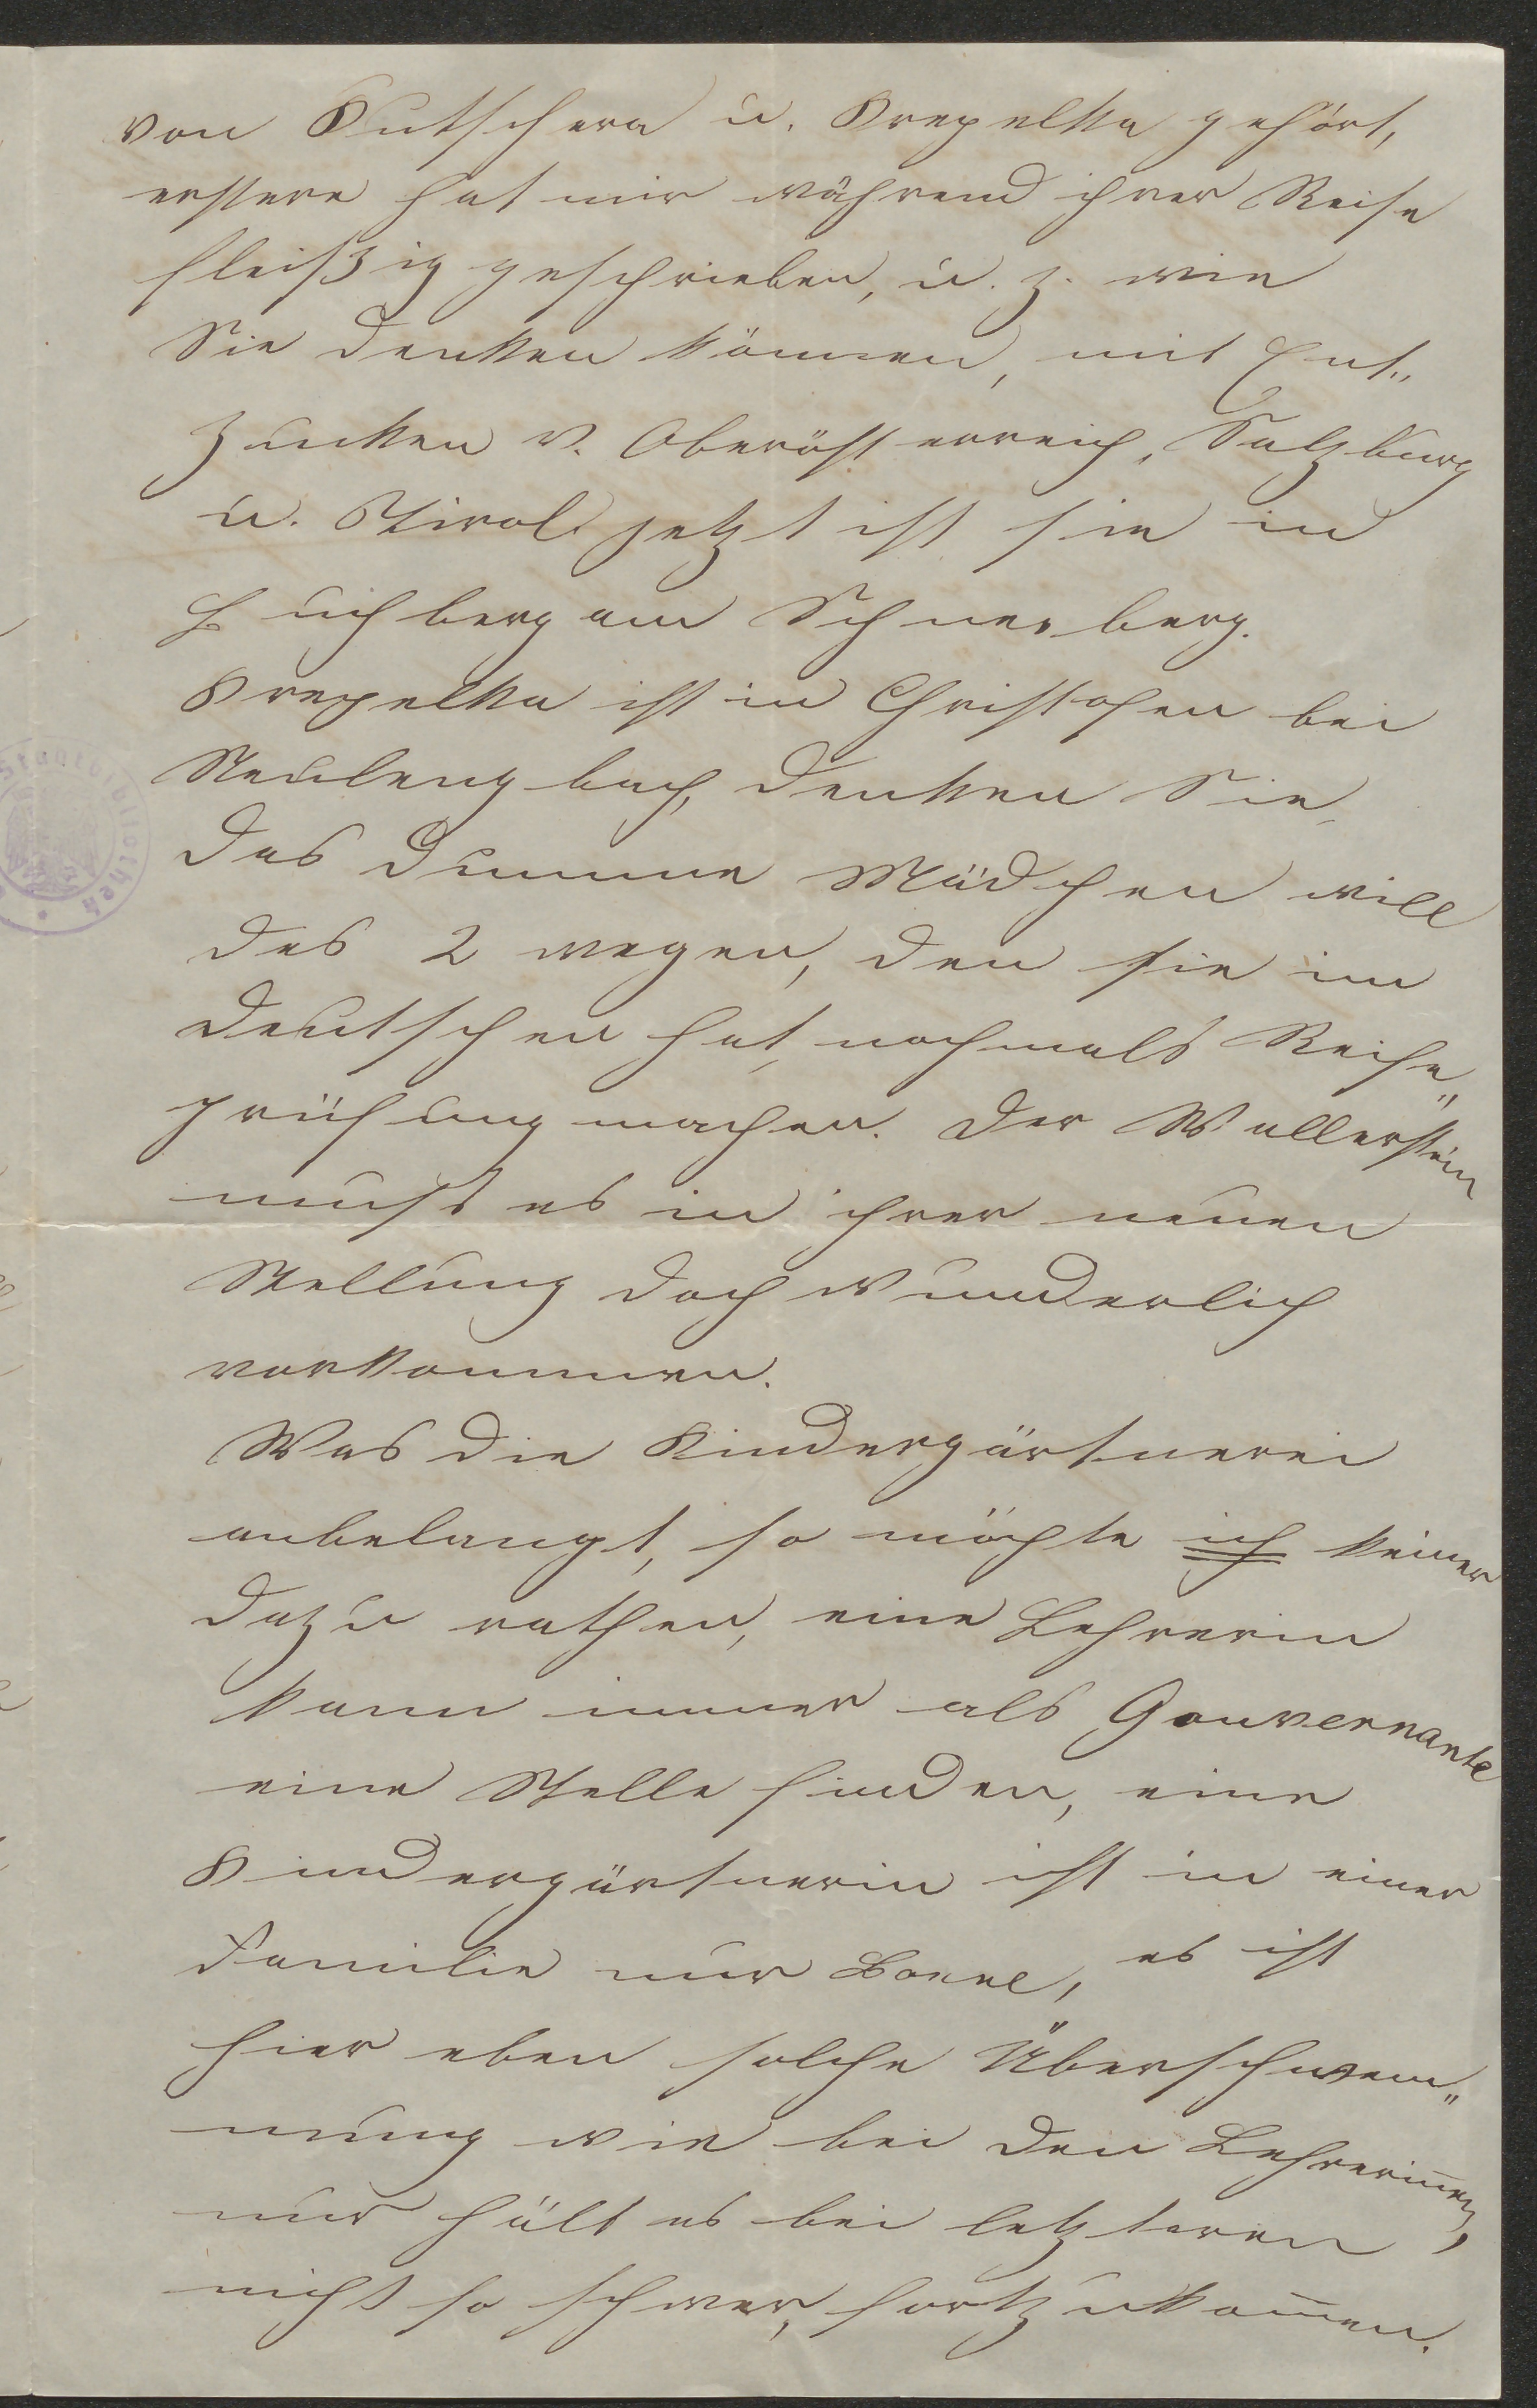 von Kutschera u. Krepelka gehört,
erstere hat mir während ihrer Reise
fleißig geschrieben, u. z. wie
Sie denken können, mit Ent„
zücken v. Oberösterreich, Salzburg
u. Tirol jetzt ist sie in
Buchberg am Schneeberg.
Krepelka ist in Christofen bei
Neulengbach, denken Sie,
das dumme Mädchen will
des 2 wegen, den sie im
Deutschen hat, nochmals Reife„
prüfung machen. Der Wallerstein
muss es in ihrer neuen
Stellung doch wunderlich
vorkommen.
Was die Kindergärtnerei
anbelangt, so möchte ich keiner
dazu rathen, eine Lehrerin
kann immer als Gouvernante
eine Stelle finden, eine
Kindergärtnerin ist in einer
Familie nur Bonne, es ist
hier eben solche Überschwem„
mung wie bei den Lehrerin̅en,
nur hält es bei letzteren
nicht so schwer, fortzukom̅en.